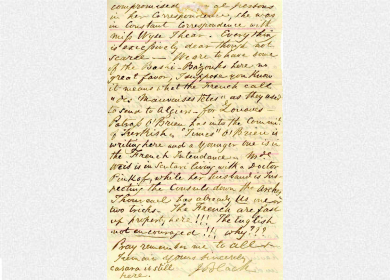 compromised persons
in her correspondence, she was
in constant correspondence with
Miss Wyse I hear. Everything
is excessively dear though not
scarce — We are to have some
of the Bashi-Bazouks here no
great favor, I suppose you know
it means what the French call
"des Mauvaises têtes" as they used
to send to Algiers — for
Patrick O'Brien has into the
of Turkish, "Times" O'Brien is
writing here and a younger one is in
the French Intendance. Mde
Weis is in Scutari living with a Doctor
Pinkof, while her husband is Ins-
pecting the Consuls down the
has already us one or
two tricks. The French are
up property here!!! The English
not encouraged!!, why?!?
Pray remember me to all &
I remain yours sincerely
is still J Black
here.